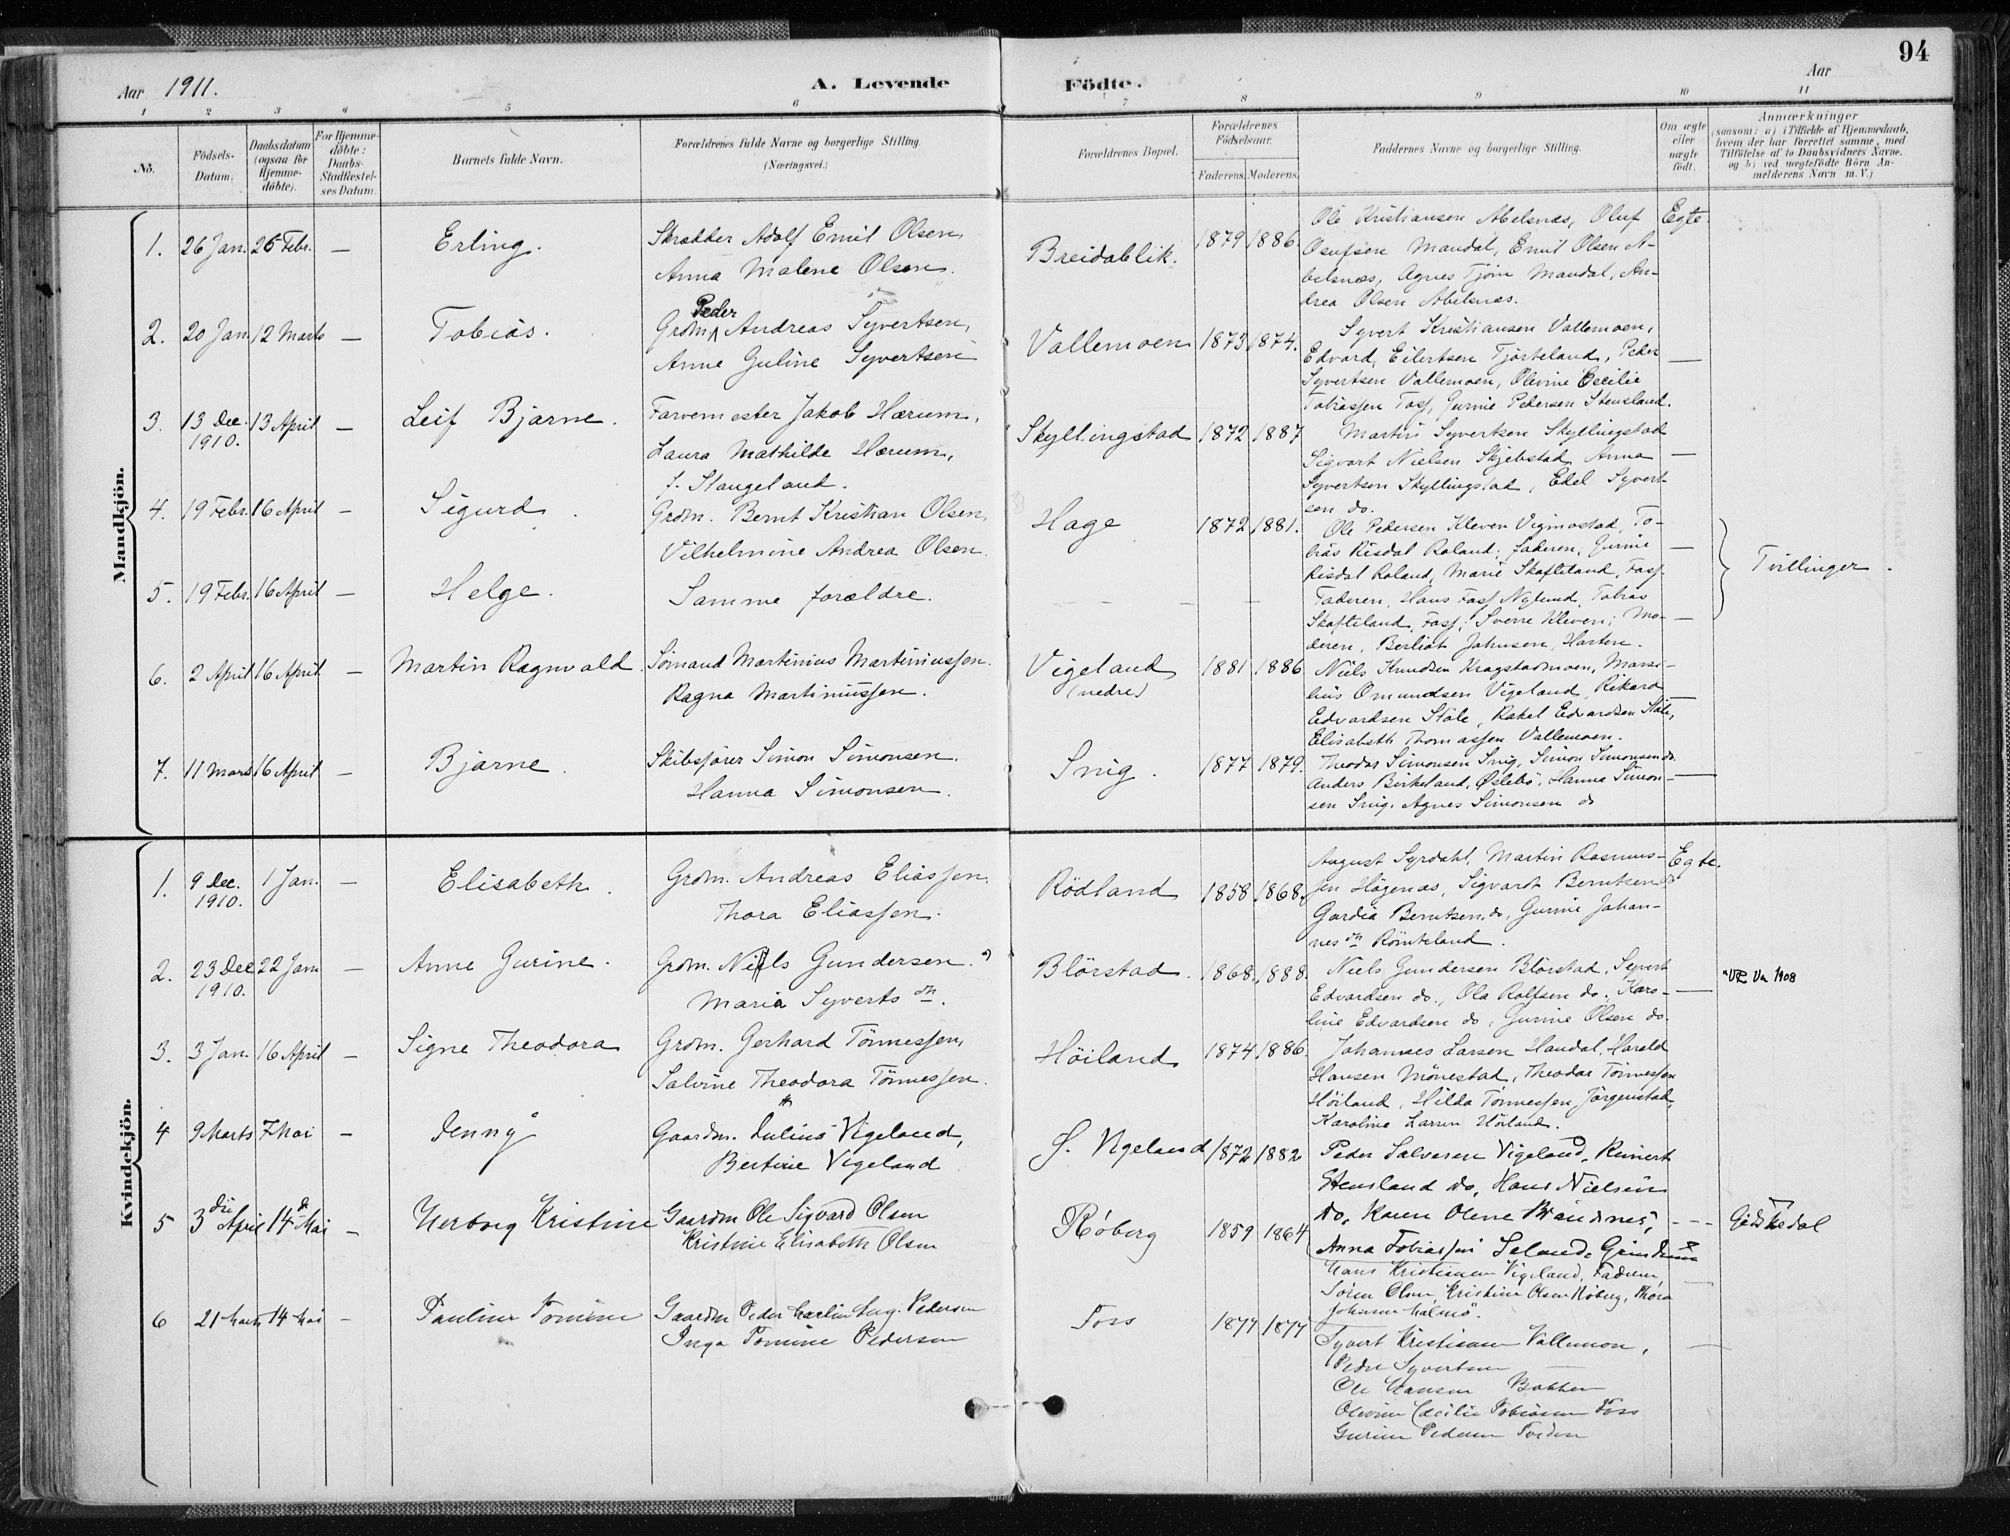 94
Aar 1911. A. Levende Födte. Aar
1 2 3 4 5 6 7 8 9 10 11
No. Födsels-Datum. Daabsdatum (ogsaa for Hjemmedöbte). For Hjemmedöbte: Daabs-Stadfæstelses Datum. Barnets fulde Navn. Forældrenes fulde Navne og borgerlige Stilling. (Næringsvei.) Forældrenes Bopæl. Forældrenes Födselsaar. Faderens. Moderens. Faddernes Navne og borgerlige Stilling. Om ægte eller uægte födt. Anmærkninger (saasom: a) i Tilfælde af Hjemmedaab, hvem der har forrettet samme, med Tilföielse af to Daabsvidners Navne. og b) ved uægtefödte Börn Anmelderens Navn m. V.)
Mandkjön.
1. 26 Jan. 26 Febr. — Erling. Skrædder Adolf Emil Olsen, Breidablik. 1879 1886. Ole Kristiansen Abelsnæs, Oluf Egte.
Anna Malene Olsen. Mandal, Emil Olsen A-
belsnæs, Agnes Tjöm Mandal, An-
drea Olsen Abelsnæs.
2. 20 Jan. 12 Marts — Tobias. Grdm. Peder Andreas Syvertsen, Vallemoen 1873 1874. Syvert Kristiansen Vallemoen,
Anne Guline Syvertsen Edvard Eilertsen Tjörteland, Peder —
Syvertsen Vallemoen, Olevine Cecilie
Tobiassen Foss, Gurine Pedersen Stensland.
3. 13 Dec. 1910. 13 April — Leif Bjarne. Farvemester Jakob Hærum, Skyllingstad 1872 1887 Martin Syvertsen Skyllingstad
Laura Mathilde Hærum, Sigvart Nielsen Skjebstad, Anna —
f. Stangeland. Syvertsen Skyllingstad, Edel Syvert
sen do.
4. 19 Febr. 16 April — Sigurd. Grdm. Bernt Kristian Olsen, Hage 1872 1881. Ole Pedersen Kleven Vigmostad, To-
Vilhelmine Andrea Olsen. bias Risdal Roland, faderen, Gurine —
Risdal Roland, Marie Skofteland, Foss. Tvillinger.
5. 19 Febr. 16 April — Helge. Samme forældre. — — — — Faderen, Hans Foss Nylund, Tobias
Skofteland, Foss; Sverre Kleven; Mo- —
deren, Berliot Johnsen, Harten.
6. 2 April 16 April — Martin Ragnvald. Sömand Martinius Martiniussen. Vigeland (nedre) 1881 1886 Niels Knudsen Kragstadmoen, Marsi-
Ragna Martiniussen. lius Omundsen Vigeland, Rikard —
Edvardsen Støle, Rakel Edvardsen Støle,
Elisabeth Thomassen Vallemoen.
7. 11 Mars 16 April — Bjarne. Skibsfører Simon Simonsen. Snig. 1877 1879. Theodor Simonsen Snig, Simon Simonsen do.
Hanna Simonsen. Anders Birkeland, Øslebö, Hanna Simon- —
sen Snig, Agnes Simonsen do
Kvindekjön.
1. 9 Dec. 1910. 1 Jan. — Elisabeth. Grdm. Andreas Eliassen, Rödland 1858 1868. August Syrdahl, Martin Rasmus- Egte.
Thora Eliassen. sen Högenas, Sigvardt Berntsen do
Gardia Berntsen do, Gurine Johan-
nesdtr Römteland.
2. 23 Dec. 1910. 22 Jan — Anne Gurine. Grdm. Niels Gundersen. Blörstad. 1868. 1888. Niels Gundersen Blörstad, Syvert
Maria Syvertsdtr. Edvardsen do., Ola Rolfsen do. Karo- —
line Edvardsen do, Gurine Olsen do.
3. 3 Jan. 16 April — Signe Theodora Grdm. Gerhard Tönnessen, Höiland 1874 1886. Johannes Larsen Haudal, Harald
Salvine Theodora Tönnessen. Hansen Mönestad, Theodor Tönnessen
Höiland, Hilda Tönnessen, Jörgenstad,
Karoline Larsen Höiland.
4 9 Marts 7 Mai — Jenny Gaardm. Julius Vigeland, S. Vigeland 1872 1882 Peder Salvesen Vigeland, Reinert
Bertine Vigeland Stensland do, Hans Nielsen
do, Karen Olene
Anna Tobiassen
5 3die April 14de Mai — Herborg Kristine Gaardm Ole Sigvard Olsen Röberg 1859 1864 Hans Kristiansen Vigeland, Faderen,
Kristine Elisabeth Olsen Sören Olsen Kristine Olsen Röberg, Thora
6 21 Marts 14 Mai — Pauline Tomine Gaardm Peder Martin Aug. Pedersen Foss 1877 1877 Syvert Kristiansen Vallemoen, —
Inga Tomine Pedersen Peder Syvertsen —
Ole Hansen Bakken
Olevine Cæcilie Tobiasen Foss
Gurine Pedersen